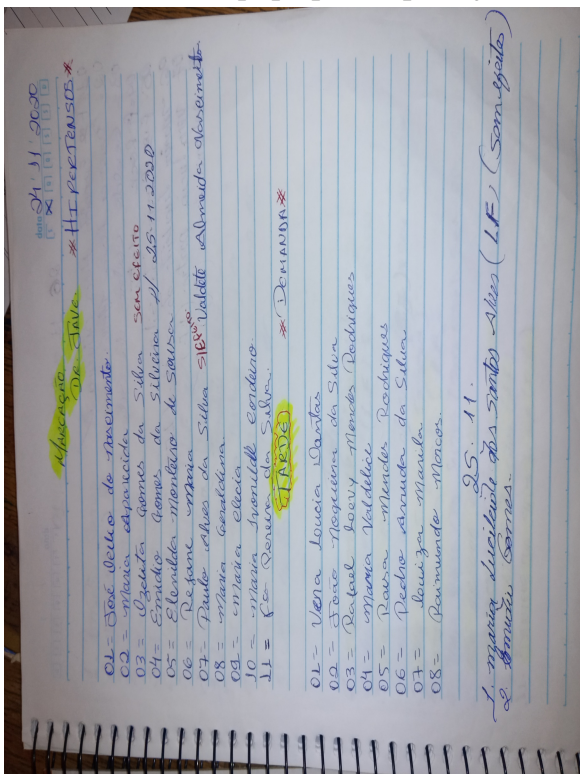 data 24 11 2020
MARCAÇÃO
DR. JAVE. *HIPERTENSOS*
01 = José Delio do Nascimento.
02 = Maria Aparecida
03 = Ozenita Gomes da Silva SEM EFEITO
04 = Emidio Gomes da 25.11.2020
05 = Elenilda Monteiro de Sousa
06 = Rejane Maria
07 = Paulo Alves da Silva S/EFEITO Valdete Almeida Nascimento
08 = Maria Geraldina
09 = Maria Elecia
10 = Maria Ivoneide Cordeiro
11 = Fca Pereira da Silva.
(TARDE) *DEMANDA*
01 = Vera Loucia Dantas
02 = Joao Noguena da Silva
03 = Rafael Loevy Mendes Rodrigues
04 = Maria Valdelice
05 = Raisa Mendes Rodrigues
06 = Pedro Arruda da Silva
07 = Louiza Marila
08 = Raimundo Marcos.
25.11.
1. Maria dos Santos Alves (Sem efeito)
2. Gomes.